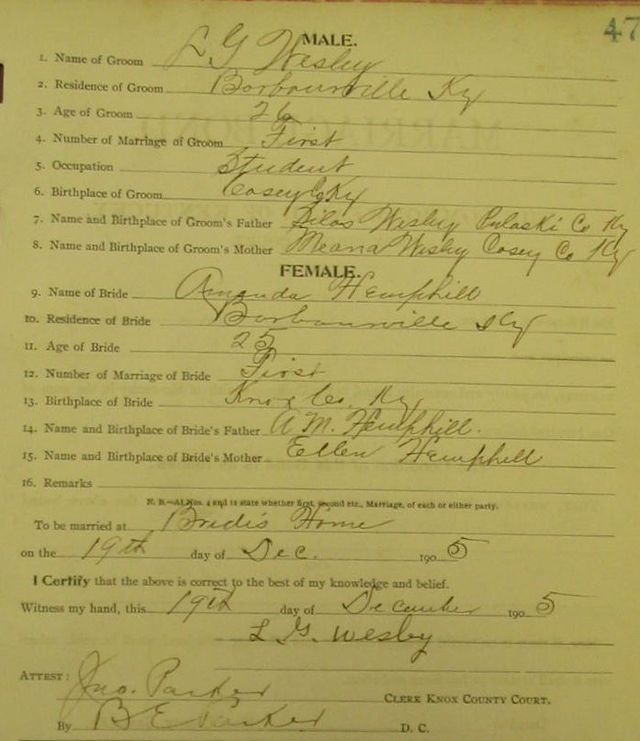 47
MALE.
1. Name of Groom L G Wesley
2. Residence of Groom Barbourville Ky
3. Age of Groom 26
4. Number of Marriage of Groom First
5. Occupation Student
6. Birthplace of Groom Casey Co Ky
7. Name and Birthplace of Groom's Father Silas Wesley Pulaski Co Ky
8. Name and Birthplace of Groom's Mother Meana Wesley Casey Co Ky
FEMALE.
9. Name of Bride Amanda Hemphill
10. Residence of Bride Barbourville Ky
11. Age of Bride 25
12. Number of Marriage of Bride First
13. Birthplace of Bride Knox Co. Ky
14. Name and Birthplace of Bride's Father A M. Hemphill.
15. Name and Birthplace of Bride's Mother Ellen Hemphill
16. Remarks
N. B.—At Nos. 4 and 12 state whether first, second etc., Marriage, of each or either party.
To be married at Bride's Home
on the 19th day of Dec. 1905
I Certify that the above is correct to the best of my knowledge and belief.
Witness my hand, this 19th day of December 1905
L G. Wesley
ATTEST:
Jno. Parker CLERK KNOX COUNTY COURT.
By B E Parker D. C.